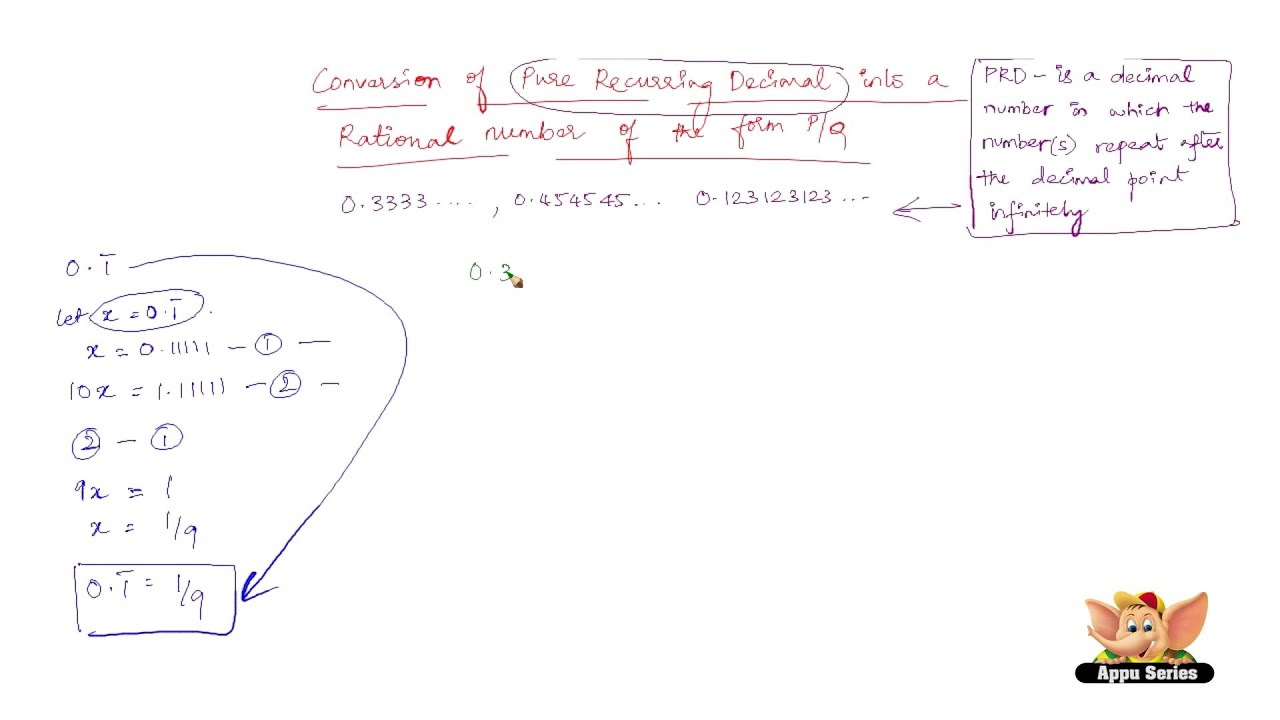 Conversion of Pure Recurring Decimal into a
Rational number of the form P/Q
0.3333...., 0.454545... 0.123123123...
PRD - is a decimal
number in which the
number(s) repeat after
the decimal point
infinitely
0.1̅
let x = 0.1̅.
x = 0.11111 - ① -
10x = 1.11111 - ② -
② - ①
9x = 1
x = 1/9
0.1̅ = 1/9
0.3
Appu Series